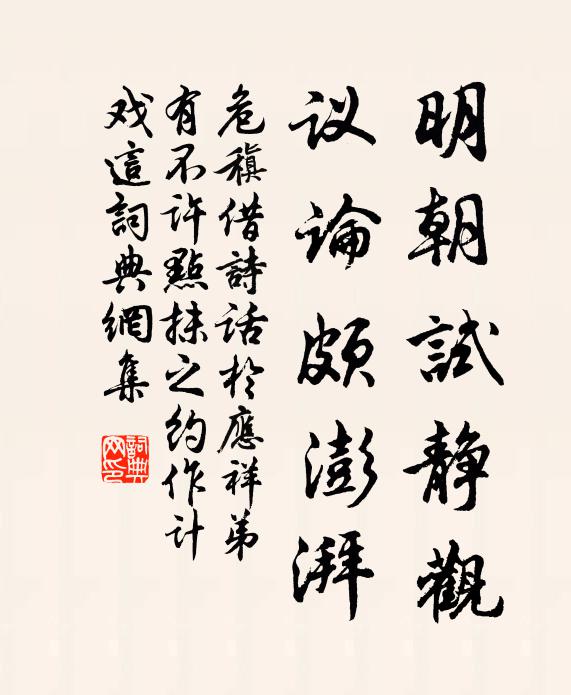 明朝試静觀
议論頗澎湃
危稹借詩話於應祥弟
有不许點抹之约作计
戏這詞典網集
詞典
网印